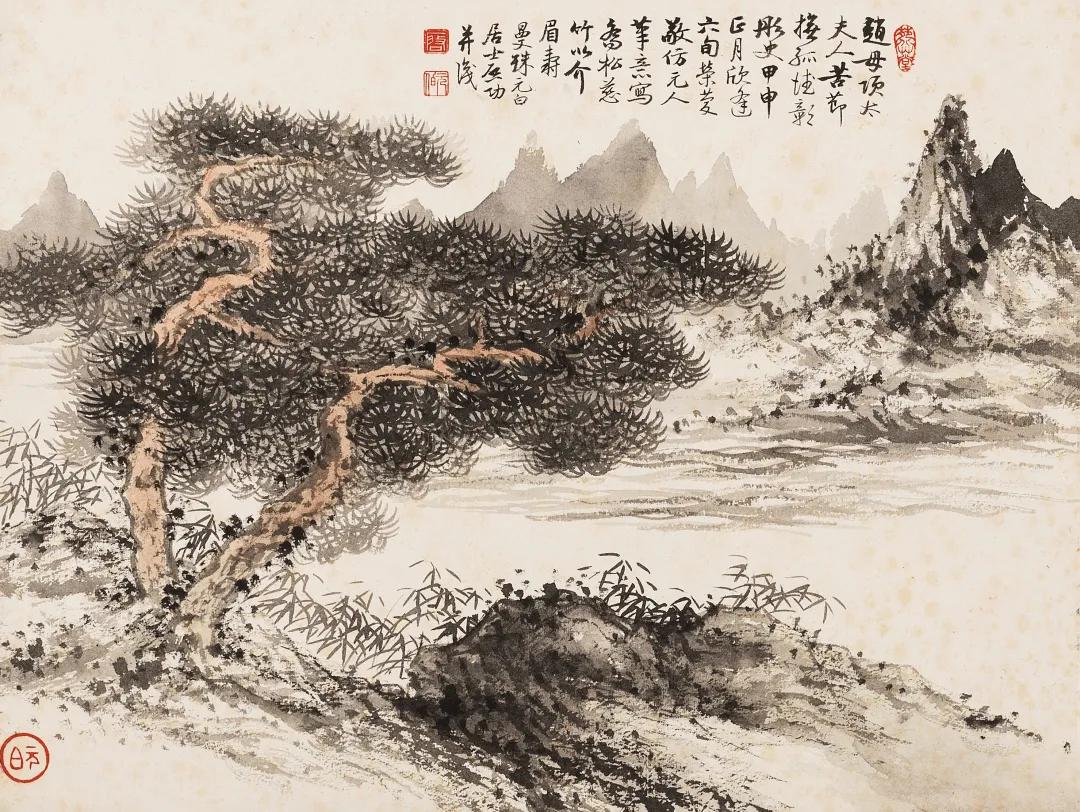 趙母項太
夫人苦節
撫孤彰
彤史甲申
正月欣逢
六旬榮慶
敬仿元人
筆意寫
喬松慈
竹以介
眉壽
曼殊元白
居士啟功
并識
元白